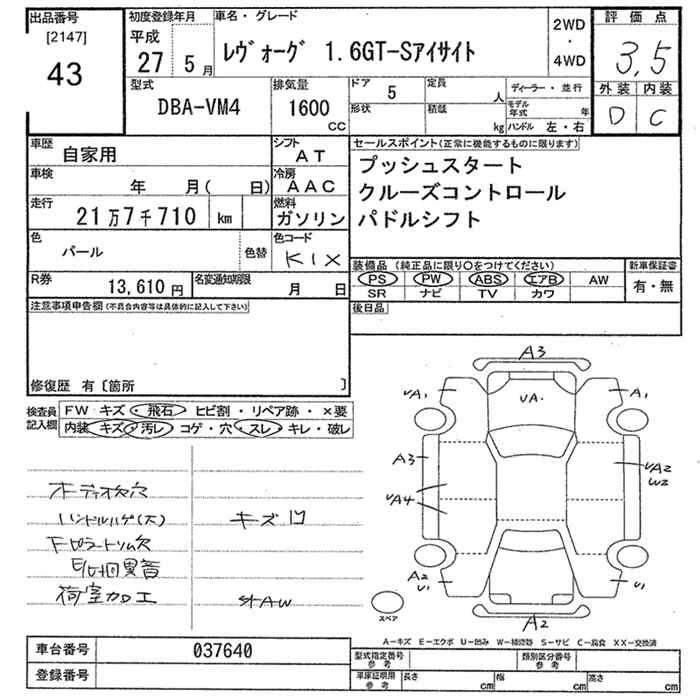 出品番号
[2147]
43
初度登録年月
平成
27 5月
車名・グレード
レヴォーグ 1.6GT-Sアイサイト
2WD
・
4WD
評価点
3,5
外装 内装
D C
型式
DBA-VM4
排気量
1600
CC
ドア 5
形状
定員 人
積載 kg
ディーラー・並行
モデル年式 年
ハンドル 左・右
車歴
自家用
シフト
AT
車検
年 月( 日)
冷房
AAC
走行
21万7千710 km
燃料
ガソリン
色
パール
色替
色コード
KIX
R券
13,610円
名変通知期限
月 日
セールスポイント(正常に機能するものに限ります)
プッシュスタート
クルーズコントロール
パドルシフト
装備品(純正品に限り○をつけてください)
PS PW ABS エアB AW
SR ナビ TV カワ
新車保証書
有・無
後日品
注意事項申告欄(不具合内容等は具体的に記入して下さい)
修復歴 有〔箇所 〕
検査員記入欄
FW キズ・飛石・ヒビ割・リペア跡・×要
内装 キズ・汚レ・コゲ・穴・スレ・キレ・破レ
オーディオ欠穴
ハンドルハゲ(大)
キズ凹
荷室加工
A3
UA1
UA・
A1
A3
UA4
UA2
W2
A2
U1
U1
A2
スペア
A-キズ E-エクボ U-凹み W-補修跡 S-サビ C-腐食 XX-交換済
車台番号 037640
登録番号
型式指定番号 参考
類別区分番号 参考
車庫証明用 参考
長さ cm
幅 cm
高さ cm